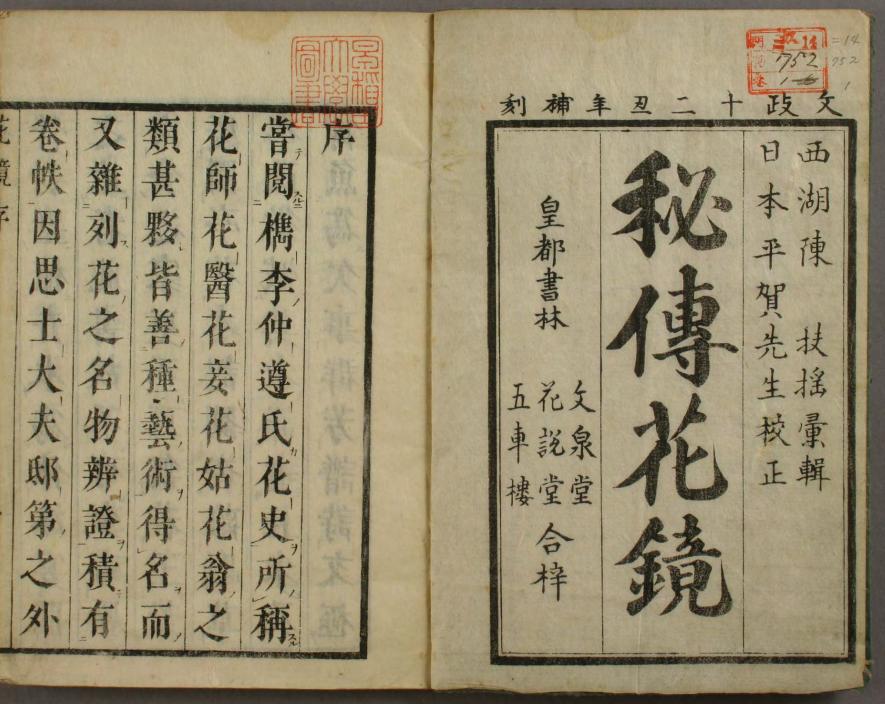 文政十二丑年補刻
西湖陳 扶揺彙輯
日本平賀先生校正
秘傳花鏡
皇都書林
文泉堂
花説堂 合梓
五車樓
752
=14
752
1
早稲田大學圖書
序
嘗閲檇李仲遵氏花史所稱
花師花醫花妾花姑花翁之
類甚夥皆善種藝術得名而
又雜列花之名物辨證積有
卷帙因思士大夫邸第之外
花鏡序